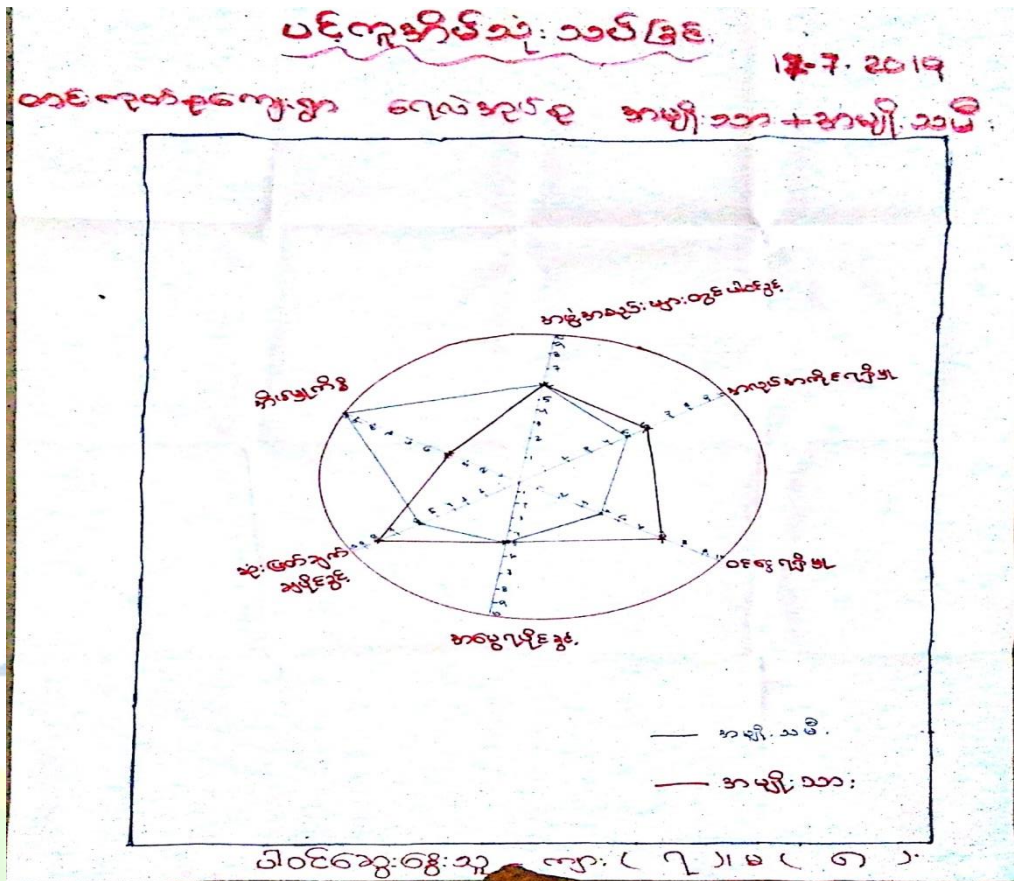 ပင့်ကူအိမ်သုံးသပ်ခြင်း
12-7-2019
တင်းကုတ်စုကျေးရွာ ရေလဲအုပ်စု အမျိုးသား + အမျိုးသမီး
အဖွဲ့အစည်းများတွင်ပါဝင်ခွင့်
အလုပ်အကိုင်ရရှိမှု
ဝင်ငွေရရှိမှု
အမွေရပိုင်ခွင့်
ဆုံးဖြတ်ချက်
ချပိုင်ခွင့်
အိမ်မှုကိစ္စ
အမျိုးသမီး
အမျိုးသား
ပါဝင်ဆွေးနွေးသူ ကျား ( ၇ )၊ မ ( ၈ )